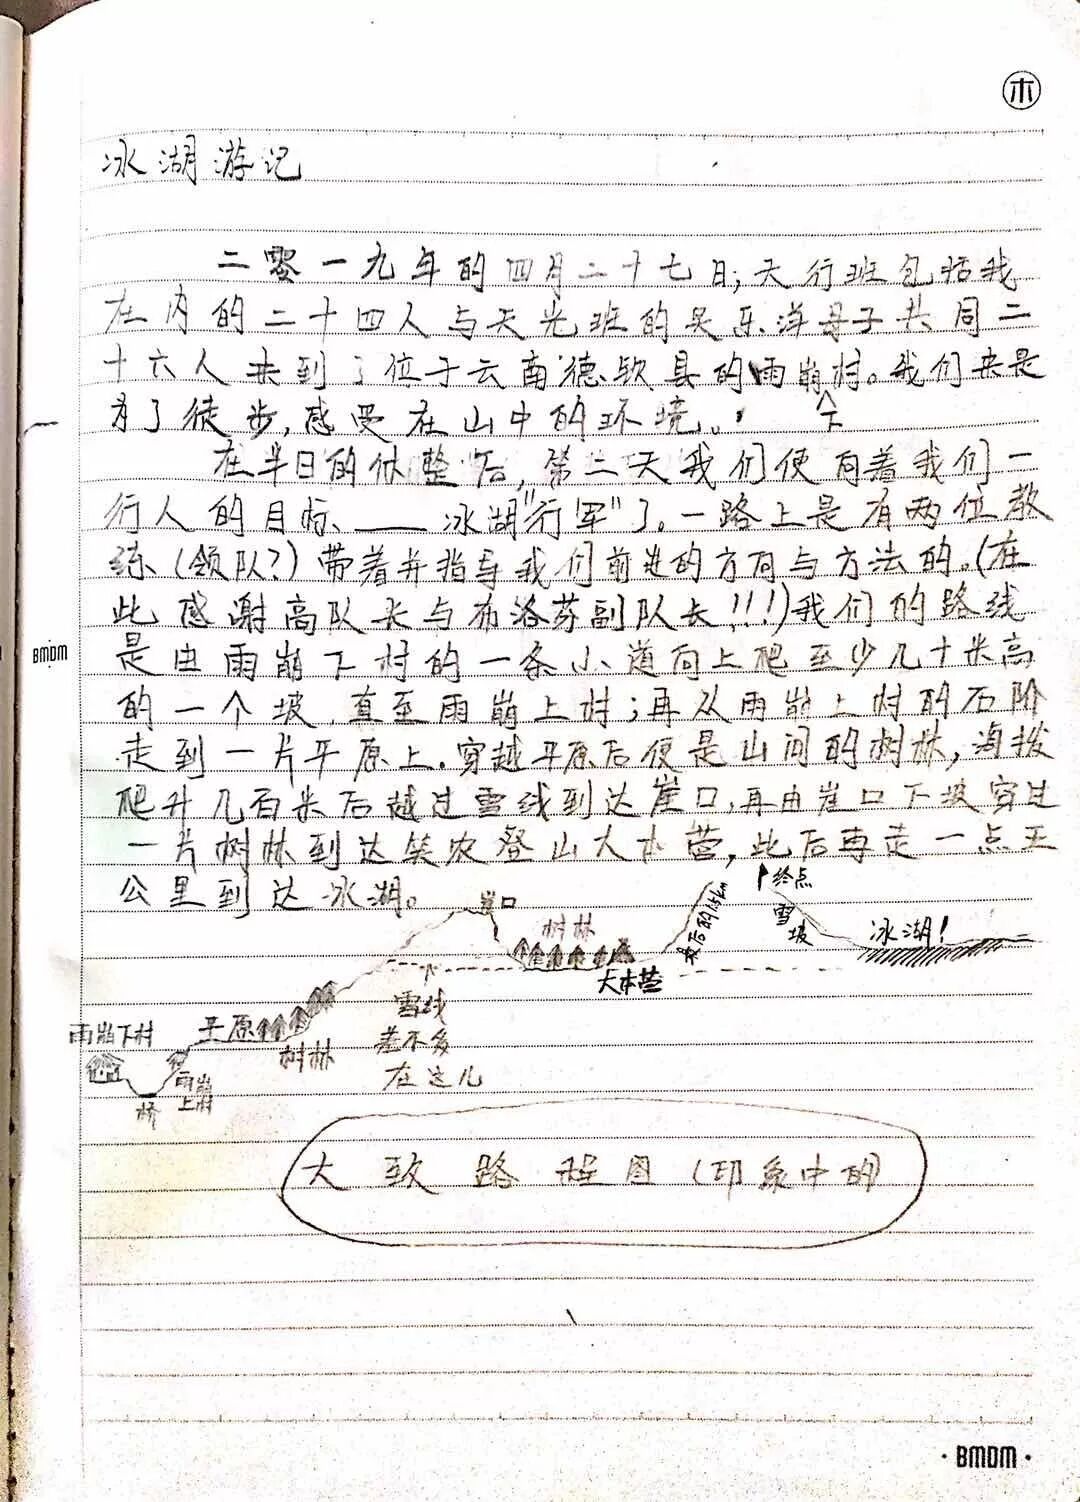 木
冰湖游记
二零一九年的四月二十七日,天行班包括我
在内的二十四人与天光班的吴乐洋母子共同二
十六人来到了位于云南德钦县的雨崩村。我们来是
下
为了徒步,感受在山中的环境。
在半日的休整后,第二天我们便向着我们一
行人的目标——冰湖"行军"了。一路上是有两位教
练(领队?)带着并指导我们前进的方向与方法的。(在
此感谢高队长与布洛芬副队长!!!)我们的路线
是由雨崩下村的一条小道向上爬至少几十米高
BMDM
的一个坡,直至雨崩上村;再从雨崩上村的石阶
走到一片平原上.穿越平原后便是山间的树林,海拨
爬升几百米后越过雪线到达崖口,再由崖口下坡穿过
一片树林到达笑农登山大本营,此后再走一点五
公里到达冰湖。
崖口
树林
大本营
最后的1.5km
终点
雪坡
冰湖!
雪线
差不多
在这儿
雨崩下村
桥
雨崩
上村
平原
树林
大致路程图(印象中的
BMDM